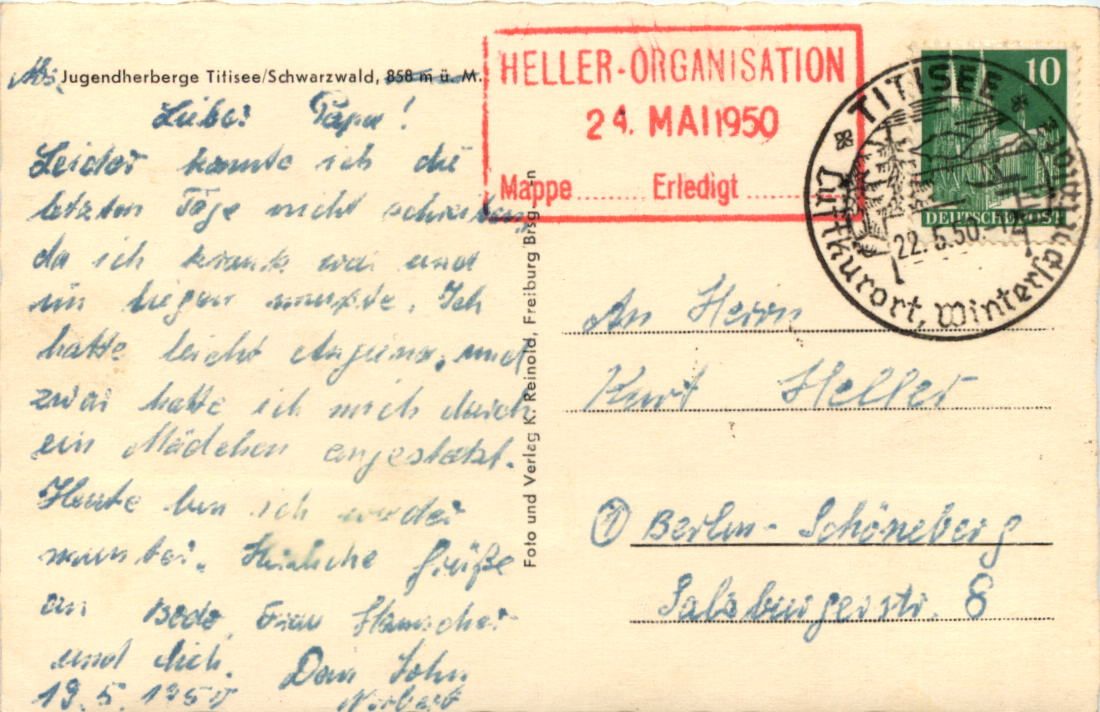 Jugendherberge Titisee/Schwarzwald, 858 m ü. M.
Lieber Papa!
Leider konnte ich die
letzten Tage nicht schreiben,
da ich krank war und
im liegen musste. Ich
hatte leicht Angina, und
zwar hatte ich mich durch
ein Mädchen angesteckt.
Heute bin ich wieder
munter. Herzliche Grüße
an Bodo, Frau
und dich. Dein Sohn
19.5.1950 Norbert
Foto und Verlag K. Reinold, Freiburg Brsg
HELLER-ORGANISATION
24. MAI 1950
Mappe ........ Erledigt ........
10
DEUTSCHE POST
TITISEE
22.5.50.-14
Luftkurort, Wintersportplatz
An Herrn
Kurt Heller
① Berlin-Schöneberg
Salzburgerstr. 8